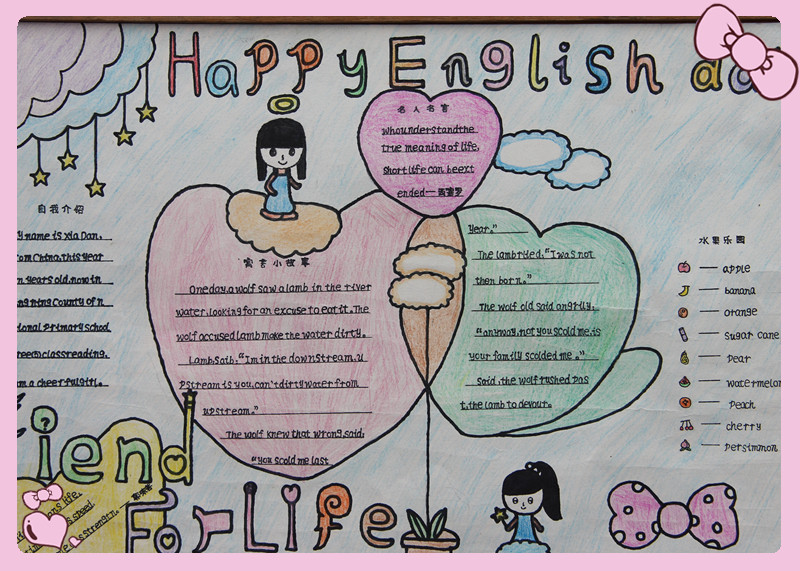 Happy English
名人名言
who understand the
true meaning of life,
short life can be ext
ended—
自我介绍
y name is xia Dan,
om China, this year
n years old, now in
ng ning County of n
ional primary school
reen class reading,
am a cheerful girl.
寓言小故事
One day, a wolf saw a lamb in the river
water, looking for an excuse to eat it. The
wolf accused lamb make the water dirty.
Lamb saib: "I'm in the downstream, u
pstream is you, can't dirty water from
upstream."
The wolf knew that wrong, said:
"you scold me last
year."
The lamb rlied, "I was not
then born."
The wolf old said angrily,
"anyway, not you scold me, is
your family scolded me."
Said, the wolf rushed pas
t, the lamb to devour.
水果乐园
apple
banana
orange
Sugar cane
pear
watermelon
Peach
cherry
persimmon
iend
For Life
ons life,
speed,
strength.